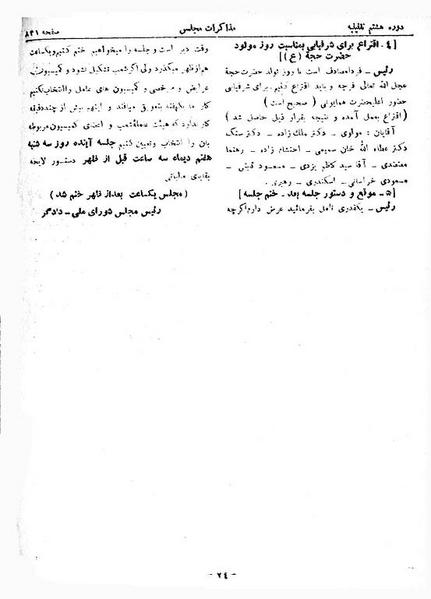 دوره هشتم تقنینیه
مذاکرات مجلس
صفحه ۸۳۱
[۴ـ اقتراع برای شرفیابی بمناسبت روز مولود
حضرت حجة (ع)]
رئیس ـ فردا مصادف است با روز تولد حضرت حجة
عجل الله تعالی فرجه و باید اقتراع کنیم برای شرفیابی
حضور اعلیحضرت همایونی ( صحیح است )
( اقتراع بعمل آمده و نتیجه بقرار ذیل حاصل شد )
آقایان : مولوی ـ دکتر ملک زاده ـ دکتر سنگ
دکتر عطاء الله خان سمیعی ـ احتشام زاده ـ رهنما
معتضدی ـ آقا سید کاظم یزدی ـ مسعود
مسعودی خراسانی ـ اسکندری ـ رهبری .
[۵ ـ موقع و دستور جلسه بعد ـ ختم جلسه]
رئیس ـ یکقدری تامل بفرمائید عرض دارم اگرچه
وقت دیر است و جلسه را میخواهیم ختم کنیم و یکساعت
هم از ظهر میگذرد ولی اگر شعب تشکیل نشود و کمیسیون
عرایض و مرخصی و کمیسیون های را انتخاب نکنیم
کار ما یکهفته بتعویق میافتد و اینهم بیش از چند دقیقه
کار ندارد که هیئت عامله شعب و اعضای کمیسیون مربوطه
بآن را انتخاب و تعیین کنیم جلسه آینده روز سه شنبه
هفتم دیماه سه ساعت قبل از ظهر دستور لایحه
بقایای مالیاتی
( مجلس یکساعت بعد از ظهر ختم شد )
رئیس مجلس شورای ملی ـ دادگر
ـ ۲٤ ـ